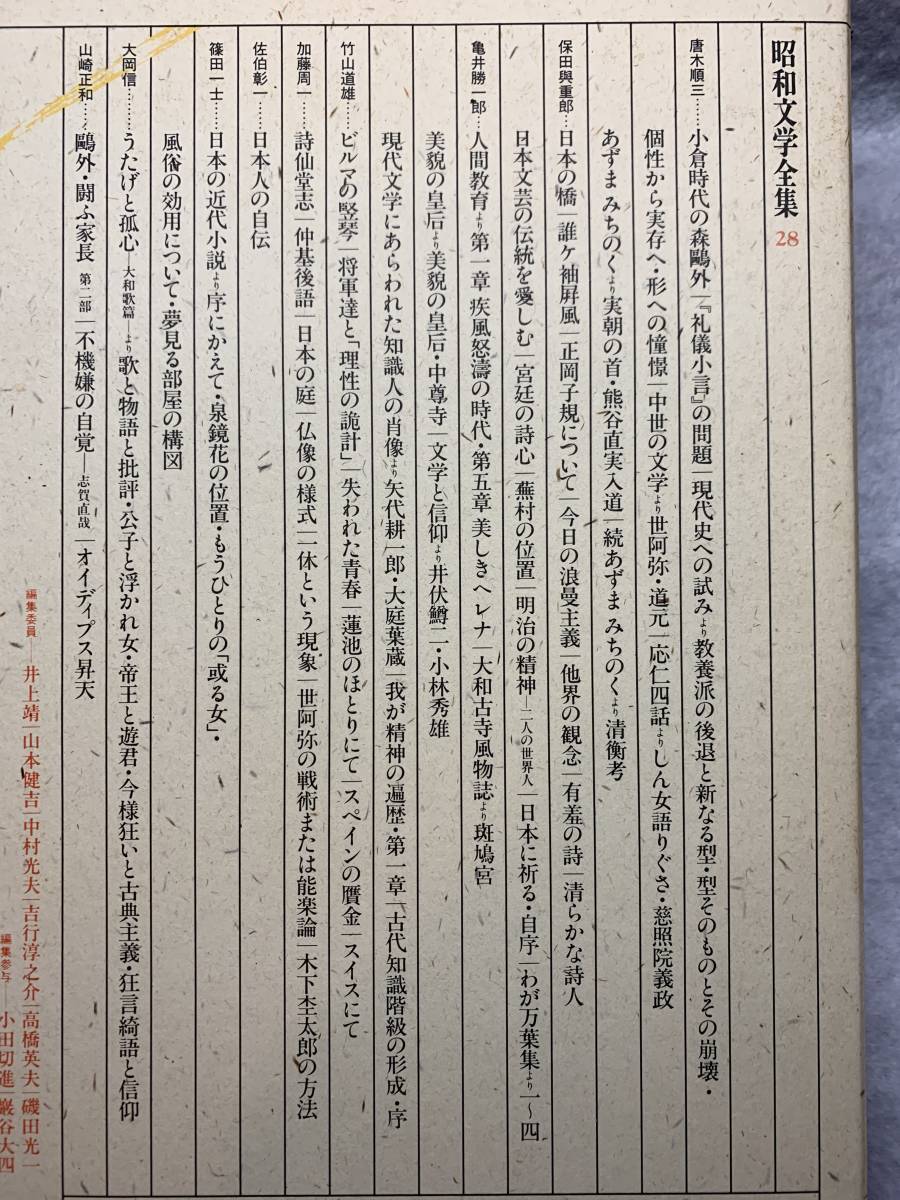 昭和文学全集 28
唐木順三……小倉時代の森鷗外｜『礼儀小言』の問題｜現代史への試みより教養派の後退と新なる型・型そのものとその崩壊・
個性から実存へ・形への憧憬｜中世の文学より世阿弥・道元｜応仁四話よりしん女語りぐさ・慈照院義政
あずまみちのくより実朝の首・熊谷直実入道｜続あずまみちのくより清衡考
保田與重郎…日本の橋｜誰ケ袖屛風｜正岡子規について｜今日の浪曼主義｜他界の観念｜有羞の詩｜清らかな詩人
日本文芸の伝統を愛しむ｜宮廷の詩心｜蕪村の位置｜明治の精神―二人の世界人｜日本に祈る・自序｜わが万葉集より一〜四
亀井勝一郎…人間教育より第一章 疾風怒濤の時代・第五章 美しきヘレナ｜大和古寺風物誌より斑鳩宮
美貌の皇后より美貌の皇后・中尊寺｜文学と信仰より井伏鱒二・小林秀雄
現代文学にあらわれた知識人の肖像より矢代耕一郎・大庭葉蔵｜我が精神の遍歴・第一章｜古代知識階級の形成・序
竹山道雄……ビルマの竪琴｜将軍達と「理性の詭計」｜失われた青春｜蓮池のほとりにて｜スペインの贋金｜スイスにて
加藤周一……詩仙堂志｜仲基後語｜日本の庭｜仏像の様式｜一休という現象｜世阿弥の戦術または能楽論｜木下杢太郎の方法
佐伯彰一……日本人の自伝
篠田一士……日本の近代小説より序にかえて・泉鏡花の位置・もうひとりの「或る女」・
風俗の効用について・夢見る部屋の構図
大岡信………うたげと孤心―大和歌篇―より歌と物語と批評・公子と浮かれ女・帝王と遊君・今様狂いと古典主義・狂言綺語と信仰
山崎正和……鷗外・闘ふ家長 第二部｜不機嫌の自覚―志賀直哉｜オイディプス昇天
編集委員―井上靖｜山本健吉｜中村光夫｜吉行淳之介｜高橋英夫｜磯田光一
編集参与―小田切進｜巖谷大四